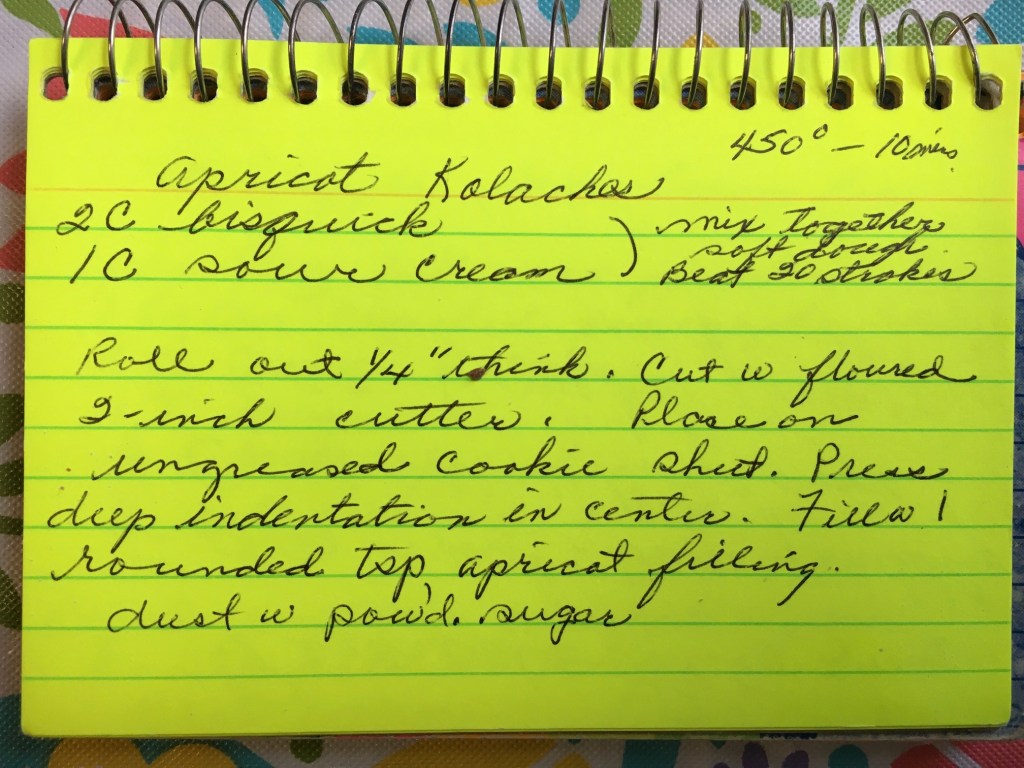 450° – 10 mins.
Apricot Kolachos
2 C bisquick ) mix together
soft dough.
1 C sour cream Beat 20 strokes
Roll out 1/4" think. Cut w floured
2-inch cutter. Place on
ungreased cookie sheet. Press
deep indentation in center. Fill w 1
rounded tsp apricot filling.
dust w pow'd. sugar